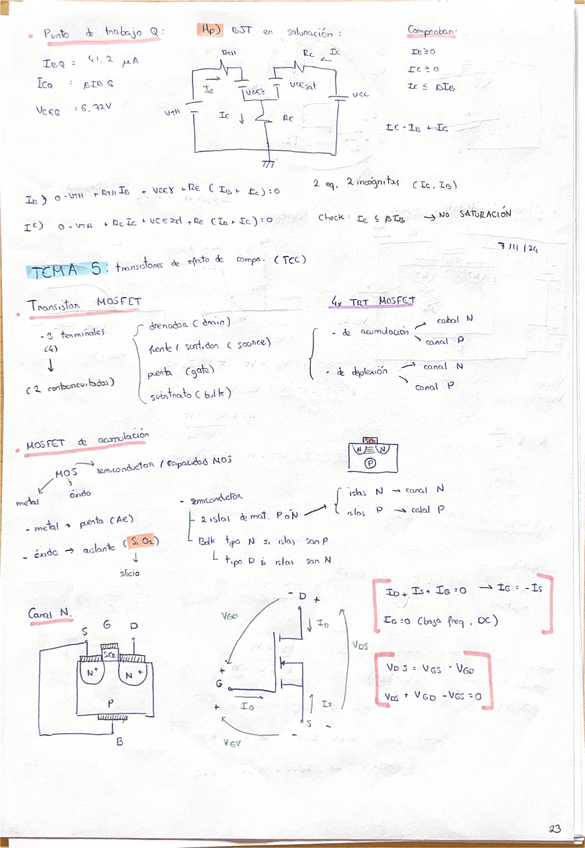 Punto de trabajo Q:
IBQ = 41,2 μA
ICQ = βIBQ
VCEQ = 6,72V
Hp) BJT en saturación:
RTH
RC
IC
IB
VBEγ
VCEsat
VTH
VCC
IE
RE
Comproban:
IB≥0
IC≥0
IC ≤ βIB
IB) 0-VTH + RTH IB + VBEγ + RE (IB + IC)=0
2 eq, 2 incógnitas (IC, IB)
IC) 0-VTH + RC IC + VCEsat + RE (IB + IC)=0
Check: IC ≤ βIB → NO SATURACIÓN
7/11/24
TEMA 5: transistores de efecto de campo. (TEC)
Transistor MOSFET
- 3 terminales
(4)
(2 cortocircuitados)
drenador (drain)
fuente/surtidor (source)
puerta (gate)
substrato (bulk)
4x TRT MOSFET
- de acumulación
canal N
canal P
- de deplexión
canal N
canal P
MOSFET de acumulación
MOS
semiconductor / capacidad MOS
metal
óxido
- metal → puerta (Ae)
- óxido → aislante (SiO2)
silicio
N N
P
- semiconductor
2 islas de mat. P o N
islas N → canal N
islas P → canal P
Bulk tipo N si islas son P
tipo P si islas son N
Canal N.
S G D
N+ N+
P
B
- D +
VGD
ID
VDS
+
G
+
IG
IS
S -
-
ID + IS + IG = 0 → IG = -IS
IG=0 (baja freq, DC)
VDS = VGS - VGD
VDS + VGD - VGS = 0
23